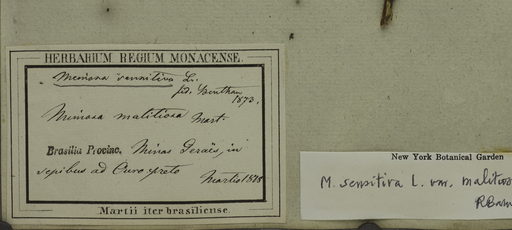 HERBARIUM REGIUM MONACENSE.
Mimosa sensitiva L.
fid. Bentham
1873.
Mimosa malitiosa Mart.
Brasilia Provinc. Minas Geraës, in
sepibus ad Ouro preto
Martio 1818
Martii iter brasiliense.
New York Botanical Garden
M. sensitiva L. var. malitios
RBarn